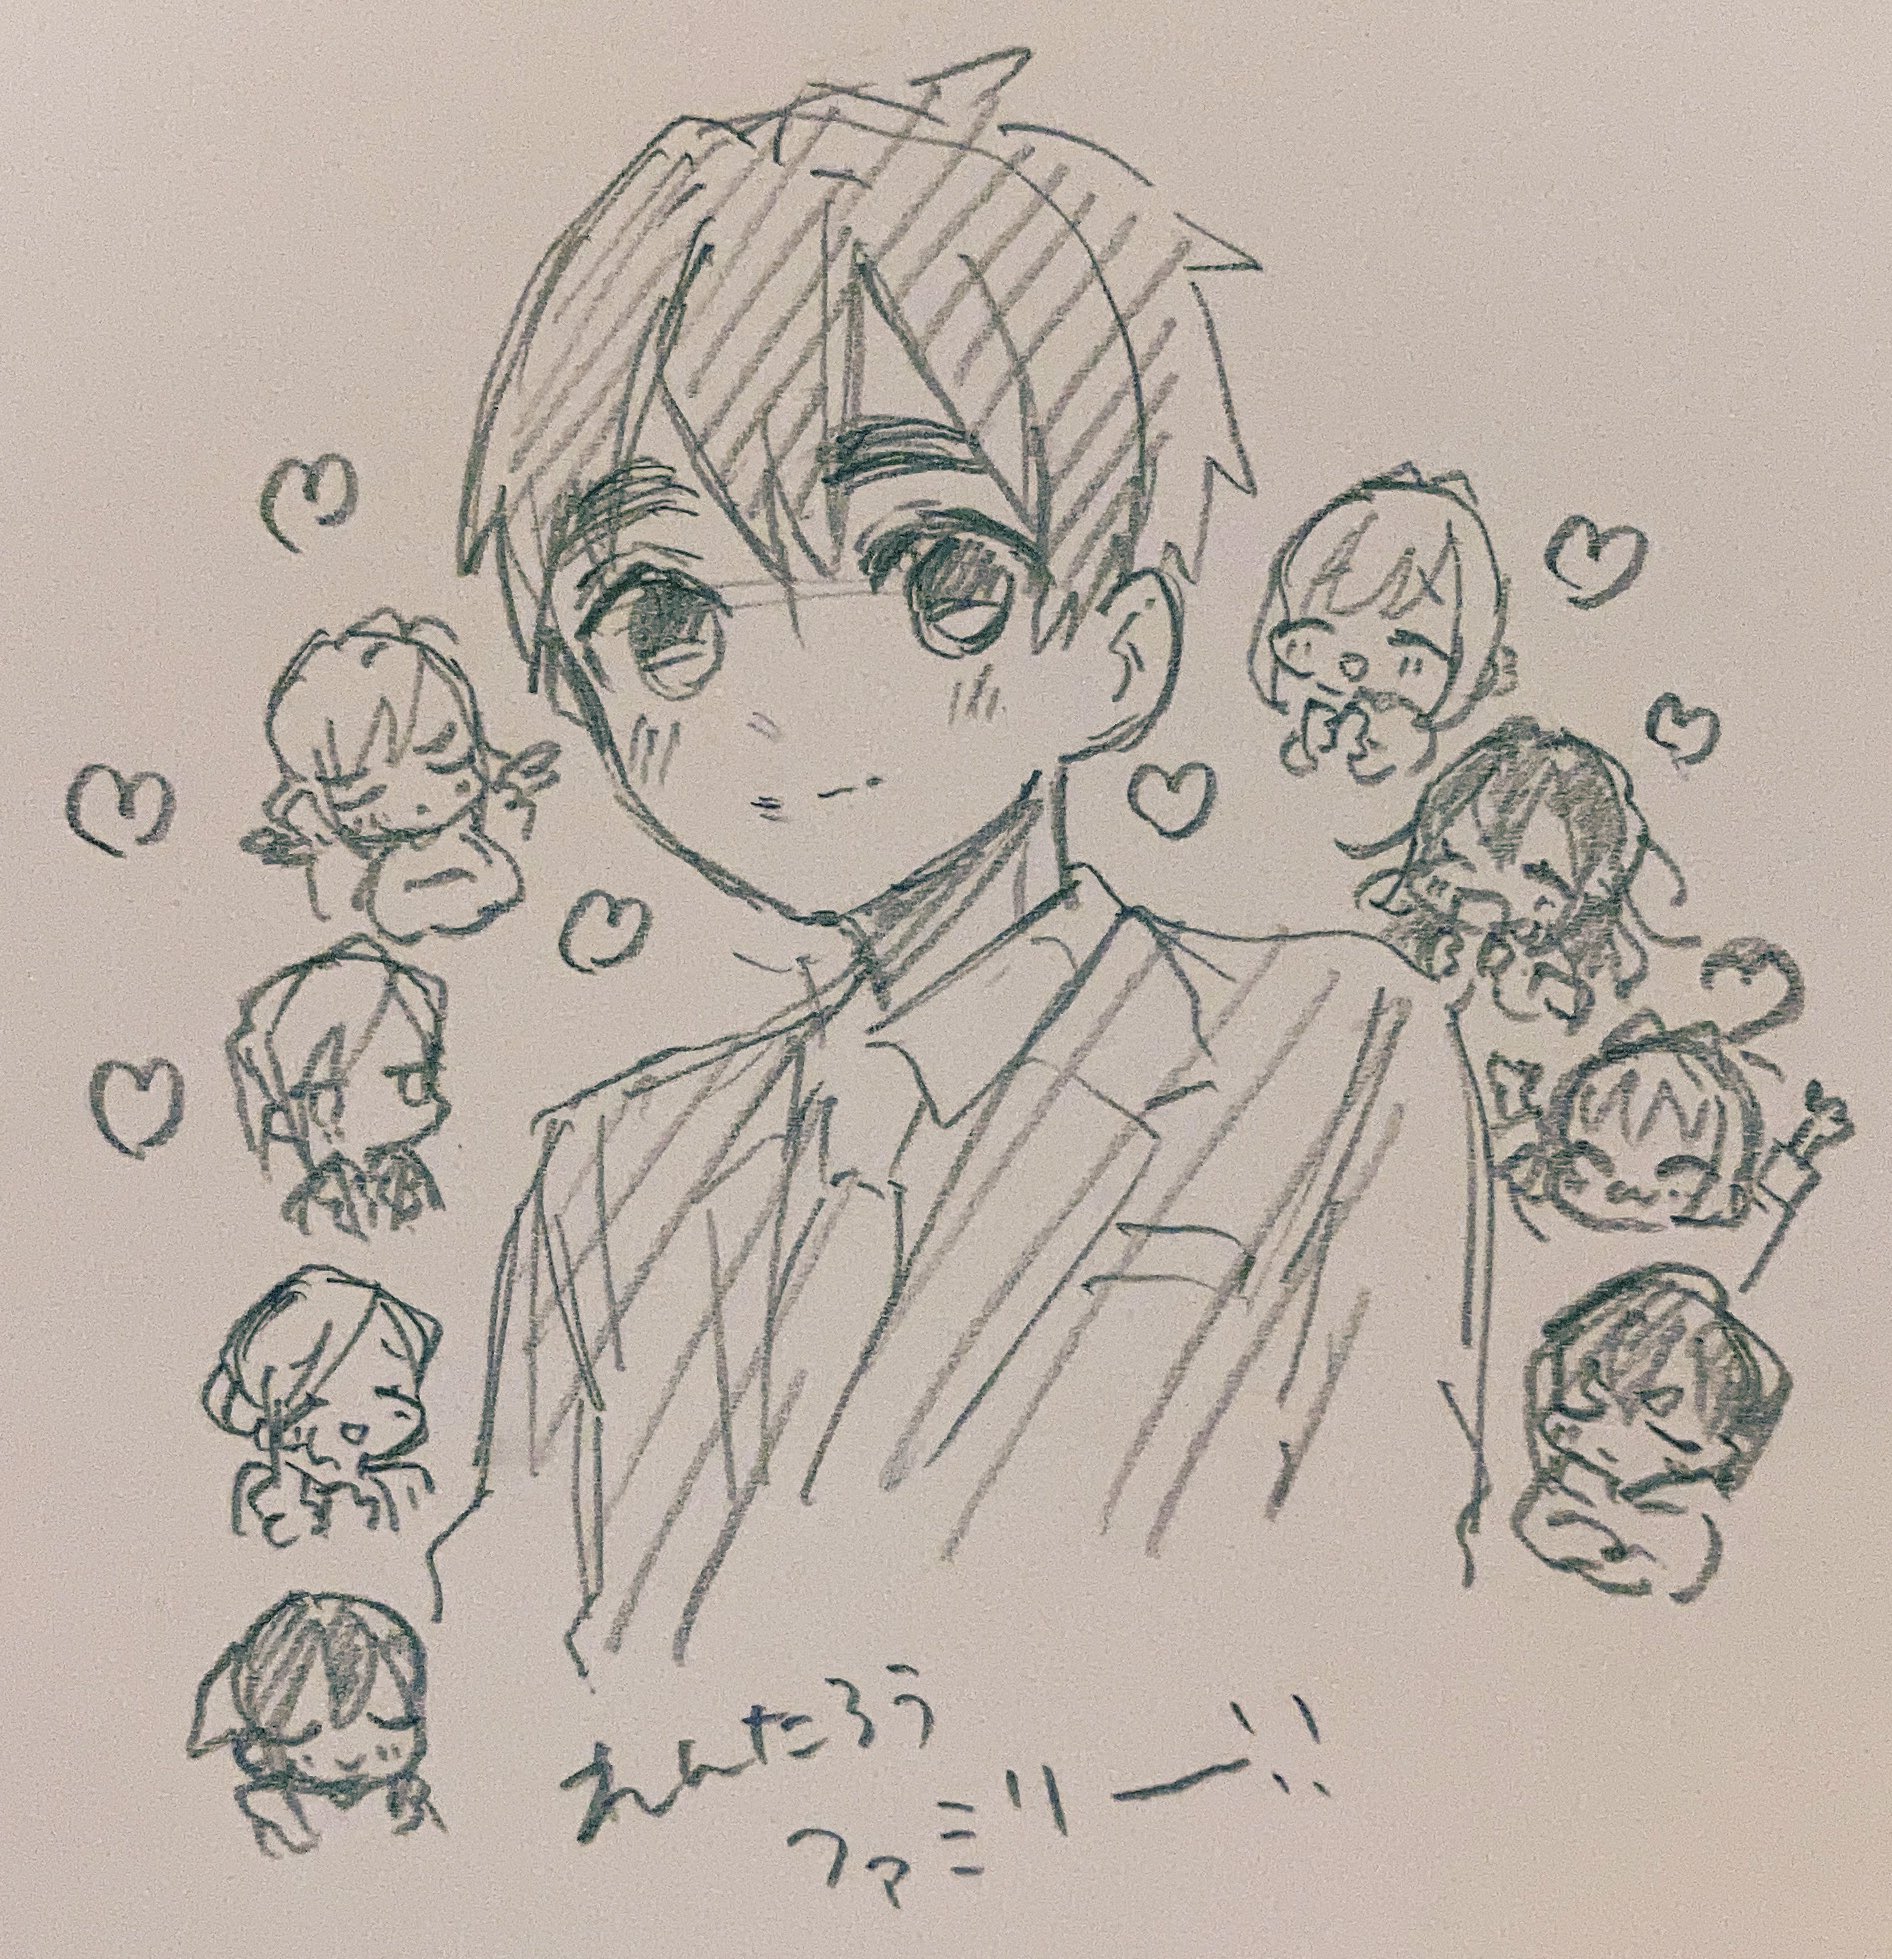 れんたろう
ファミリー!!